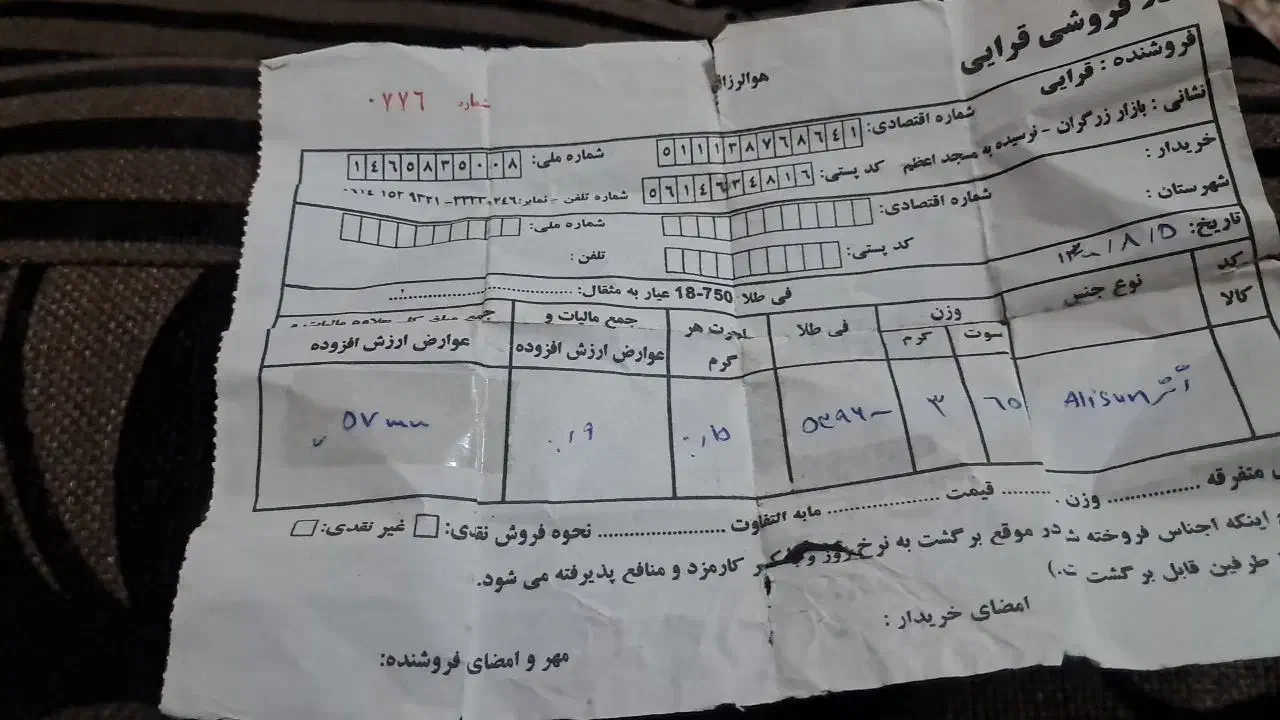 فروشی قرایی
هوالرزاق
شماره ۰۷۷۶
فروشنده : قرایی
شماره اقتصادی: ۵۱۱۱۳۸۷۶۸۶۴۱
شماره ملی: ۱۴۶۵۸۳۵۰۰۸
نشانی : بازار زرگران - نرسیده به مسجد اعظم
کد پستی: ۵۶۱۴۶۳۴۸۱۶
شماره تلفن - نمابر:
خریدار :
شماره اقتصادی:
شماره ملی:
شهرستان :
کد پستی:
تلفن :
تاریخ: ۱۴۰۰/۸/۵
فی طلا 750-18 عیار به مثقال:
کد کالا
نوع جنس
وزن
سوت
گرم
فی طلا
اجرت هر گرم
جمع مالیات و عوارض ارزش افزوده
عوارض ارزش افزوده
Alisun
۶۵
۳
۰/۱۵
۰/۹
متفرقه ............ وزن ............ قیمت ............ مابه التفاوت ............ نحوه فروش نقدی: غیر نقدی:
اینکه اجناس فروخته شده در موقع برگشت به نرخ روز و کارمزد و منافع پذیرفته می شود.
طرفین قابل برگشت
امضای خریدار :
مهر و امضای فروشنده: